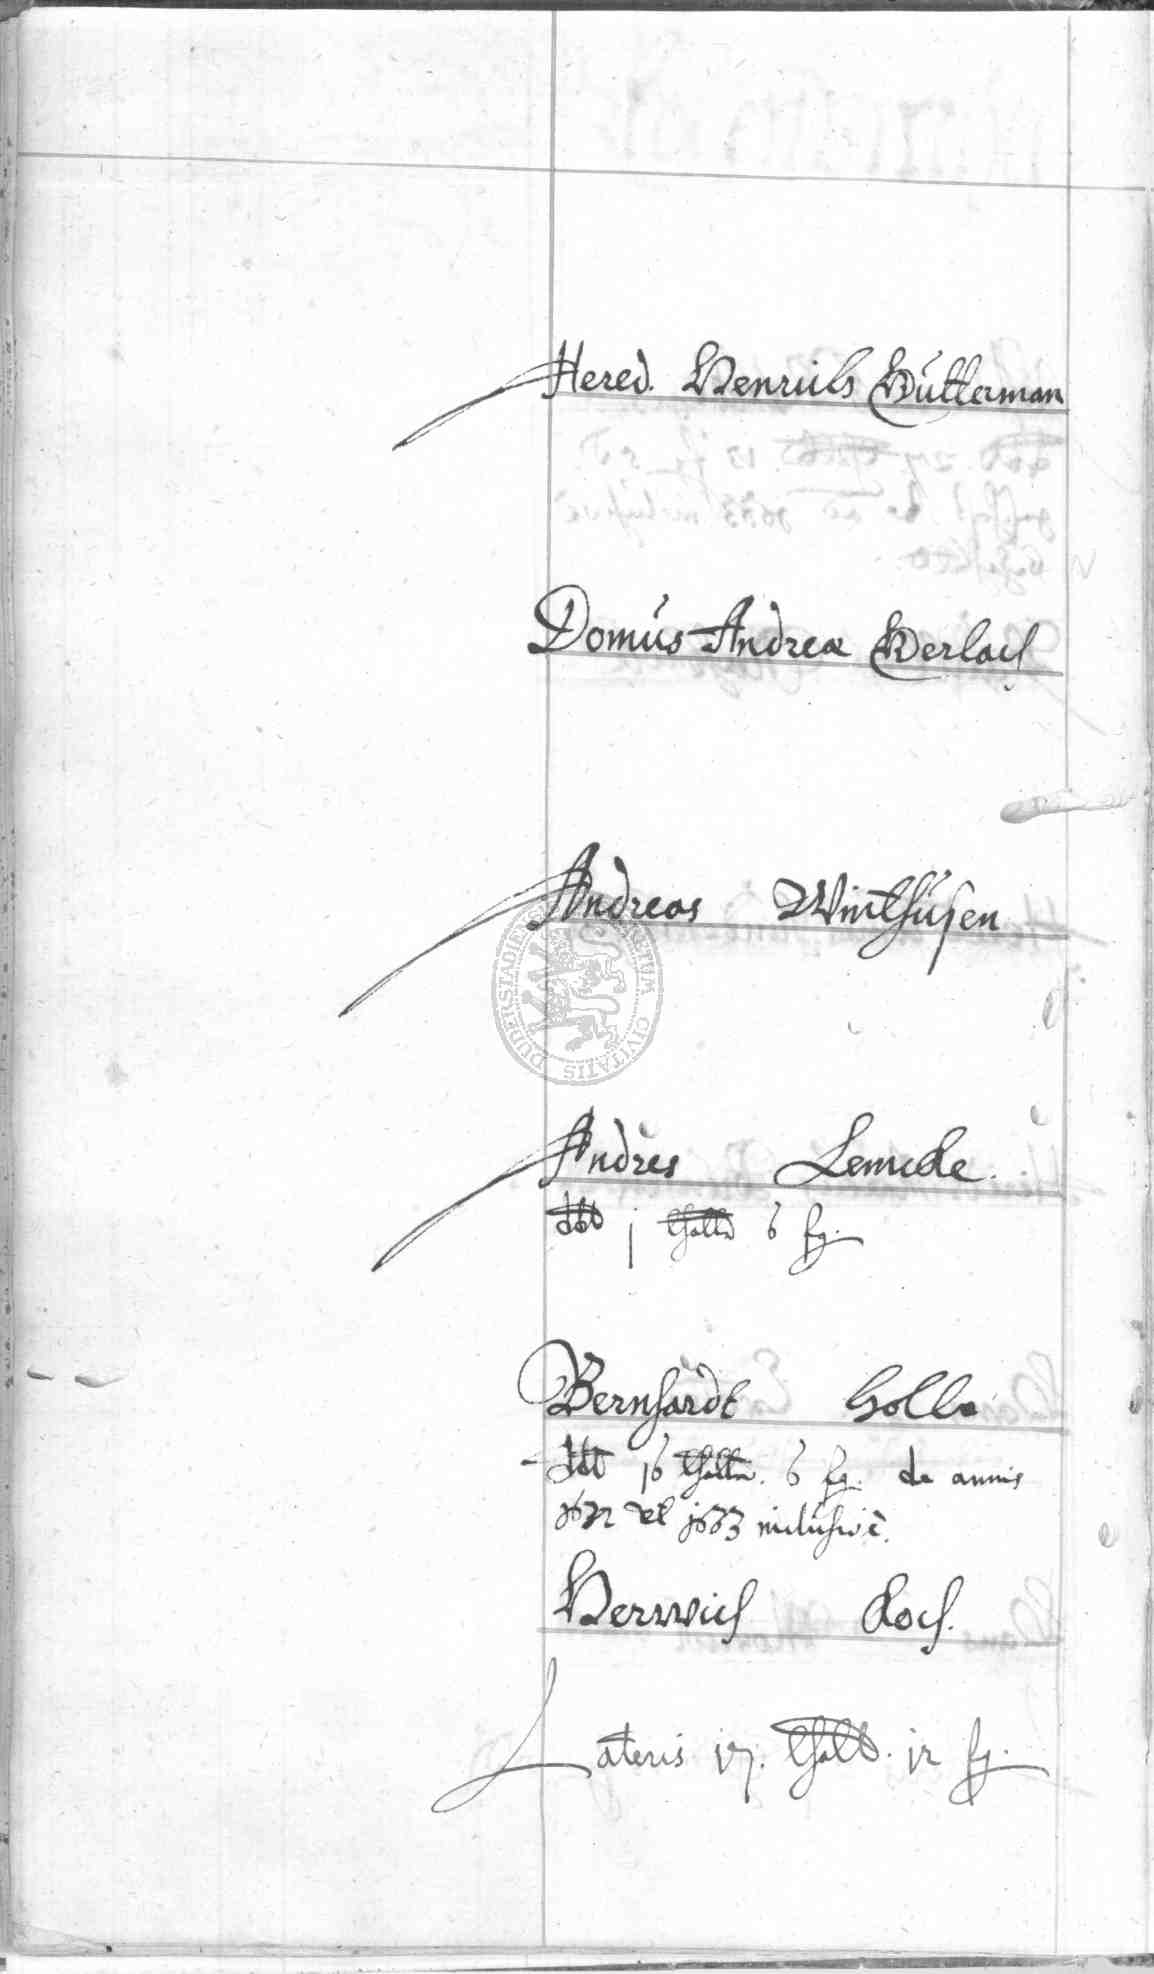 Hered. Henrichs Hütterman
Domus Andreæ Gerlach
Andreas Winthusen
SECRETUM CIVITATIS DUDERSTADIENSIS
Andres Lemcke.
ddt j thaller 6 fg.
Bernhardt Holle
ddt 16 thaller. 6 fg. de annis
1632 et 1633 inclusivè.
Herwich Koch.
Lateris 17. thall. 12 fg.